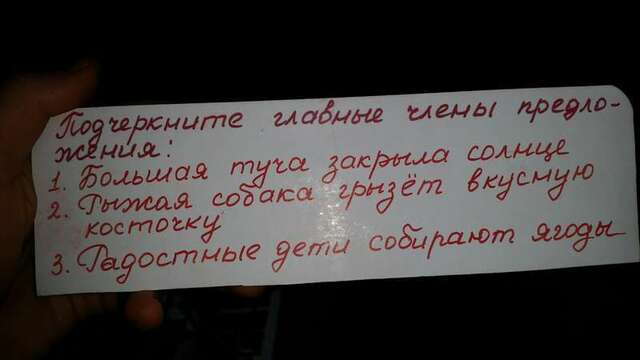 Подчеркните главные члены предло-
жения:
1. Большая туча закрыла солнце
2. Рыжая собака грызёт вкусную
косточку
3. Радостные дети собирают ягоды